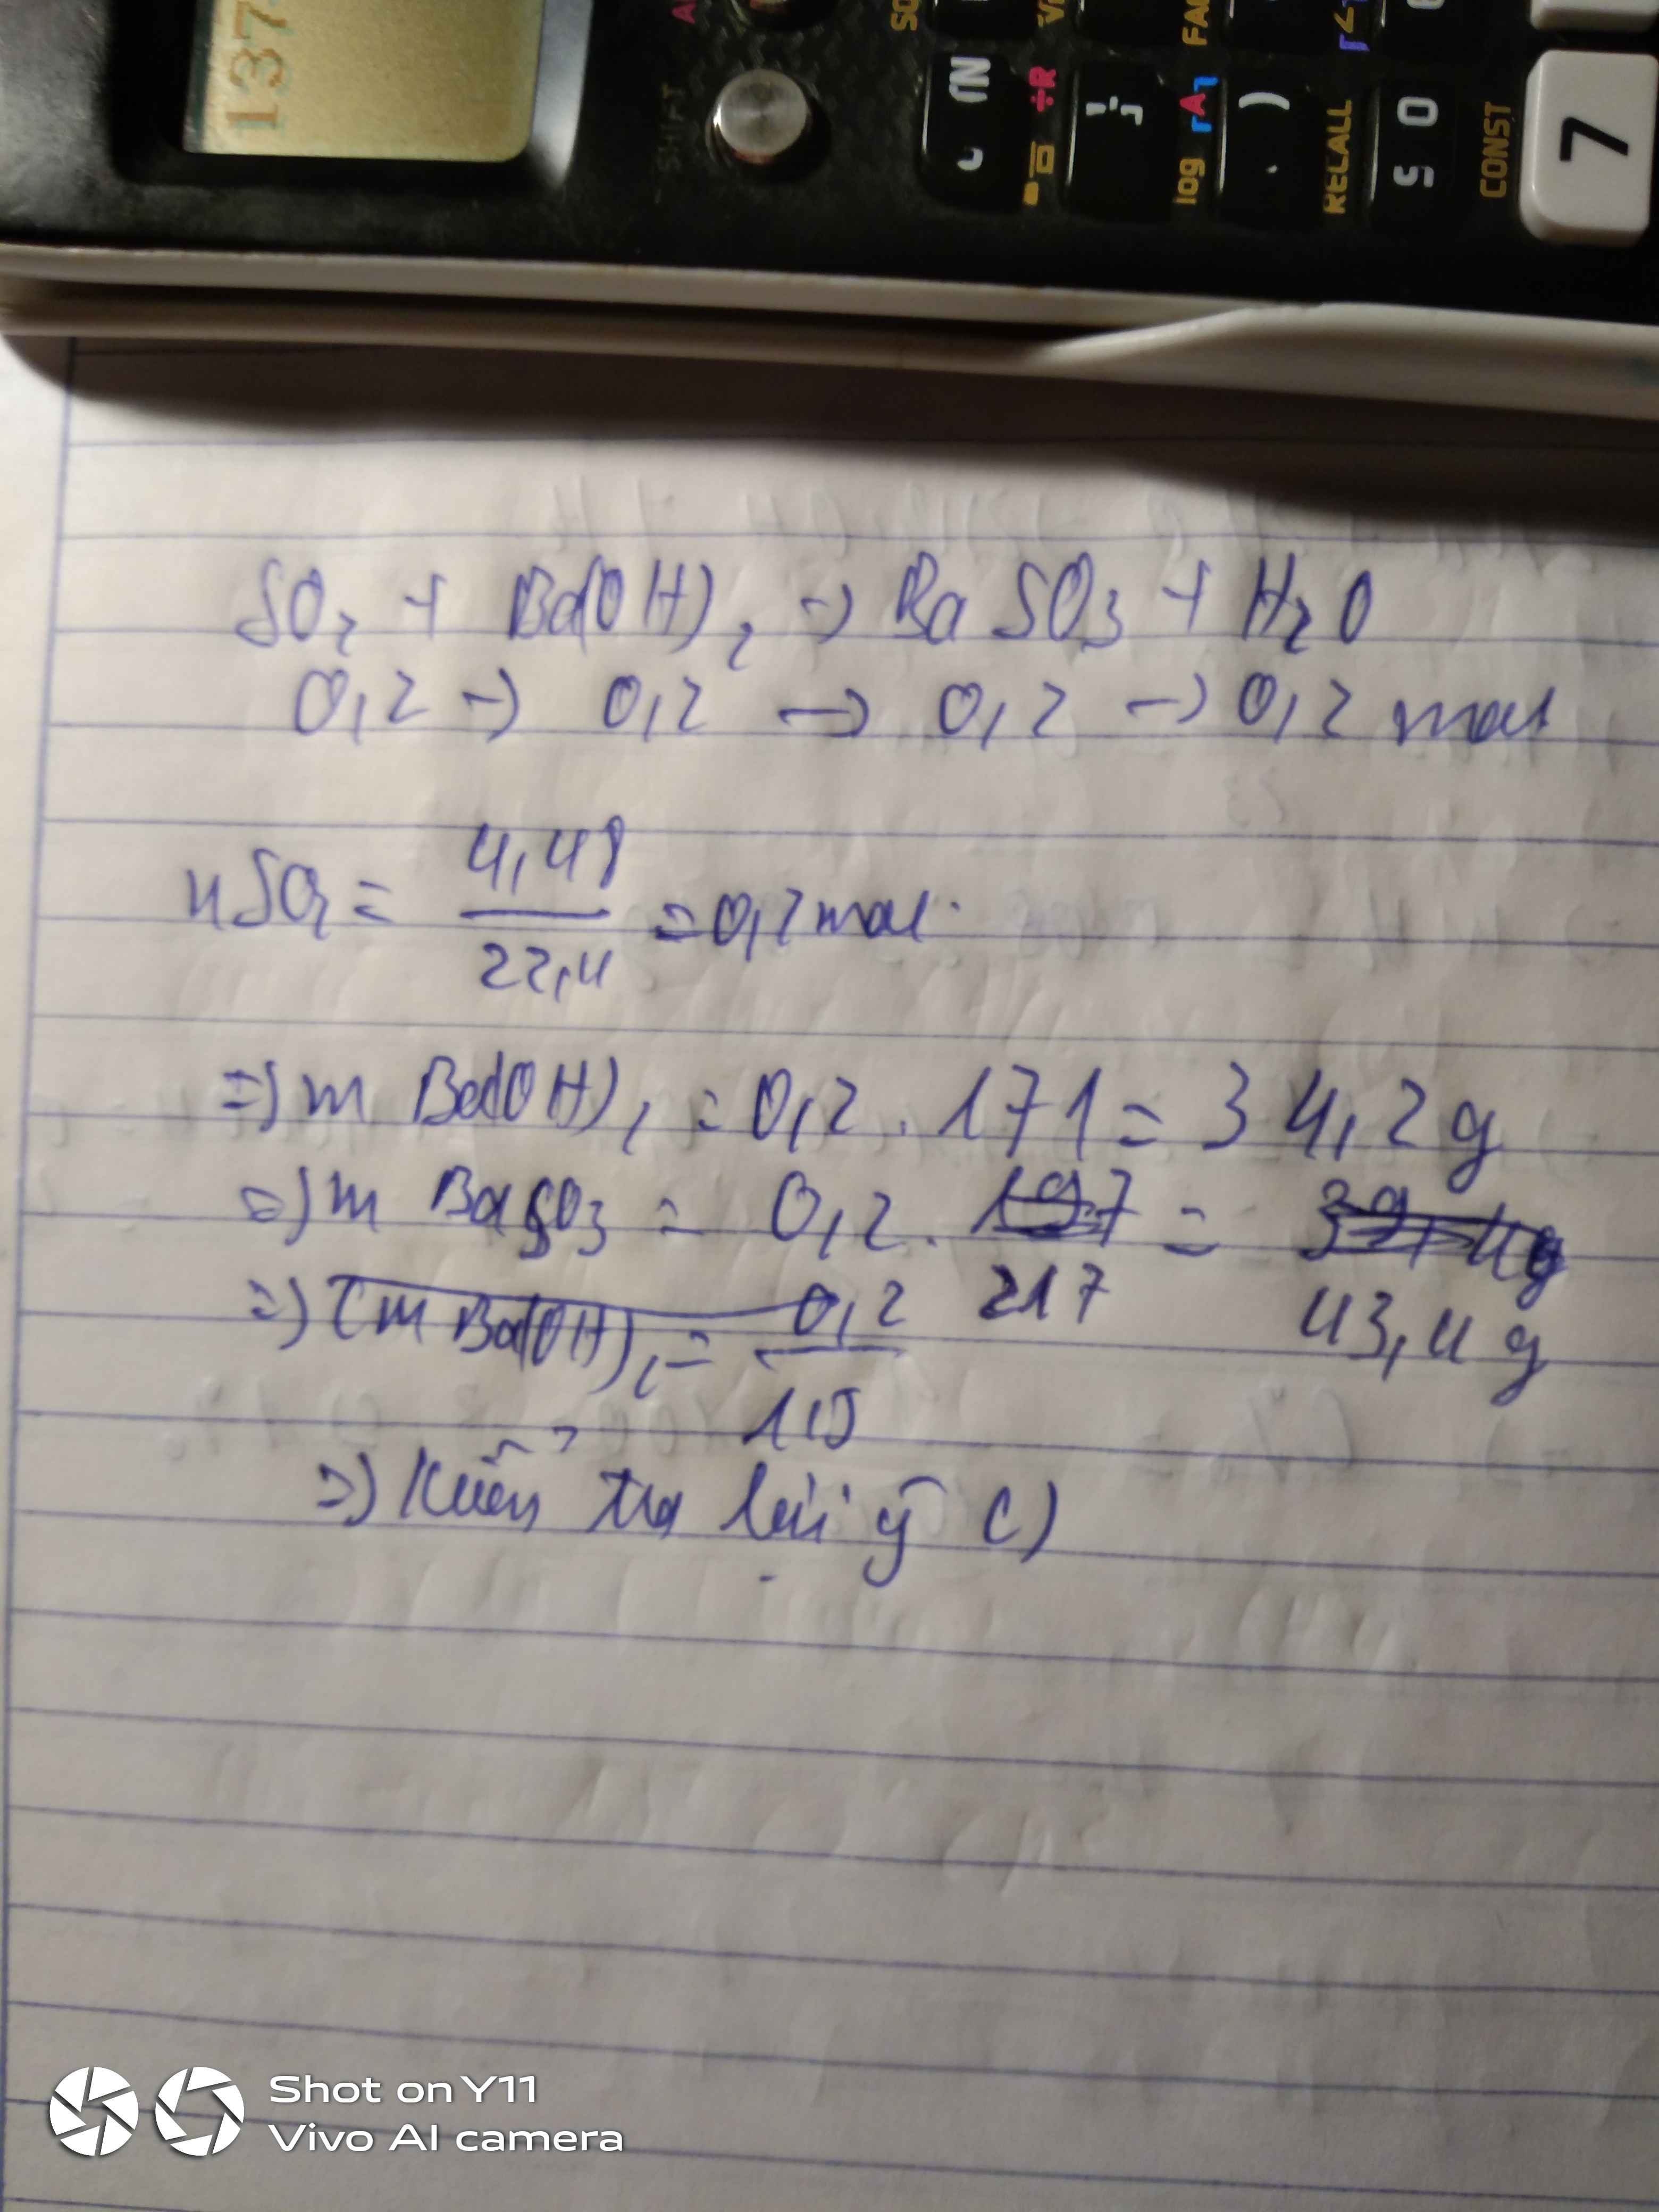 137
SHIFT
÷R
log
)
RECALL
CONST
7
SO₂ + Ba(OH)₂ → BaSO₃ + H₂O
0,2 → 0,2 → 0,2 → 0,2 mol
nSO₂ = 4,48 / 22,4 = 0,2 mol.
=) m Ba(OH)₂ = 0,2 . 171 = 34,2 g
=) m BaSO₃ = 0,2 . 197 = 39,4g
217 43,4 g
=) Cm Ba(OH)₂ = 0,2 / 1,5
=) Kiểm tra lại ý c)
Shot on Y11
Vivo AI camera